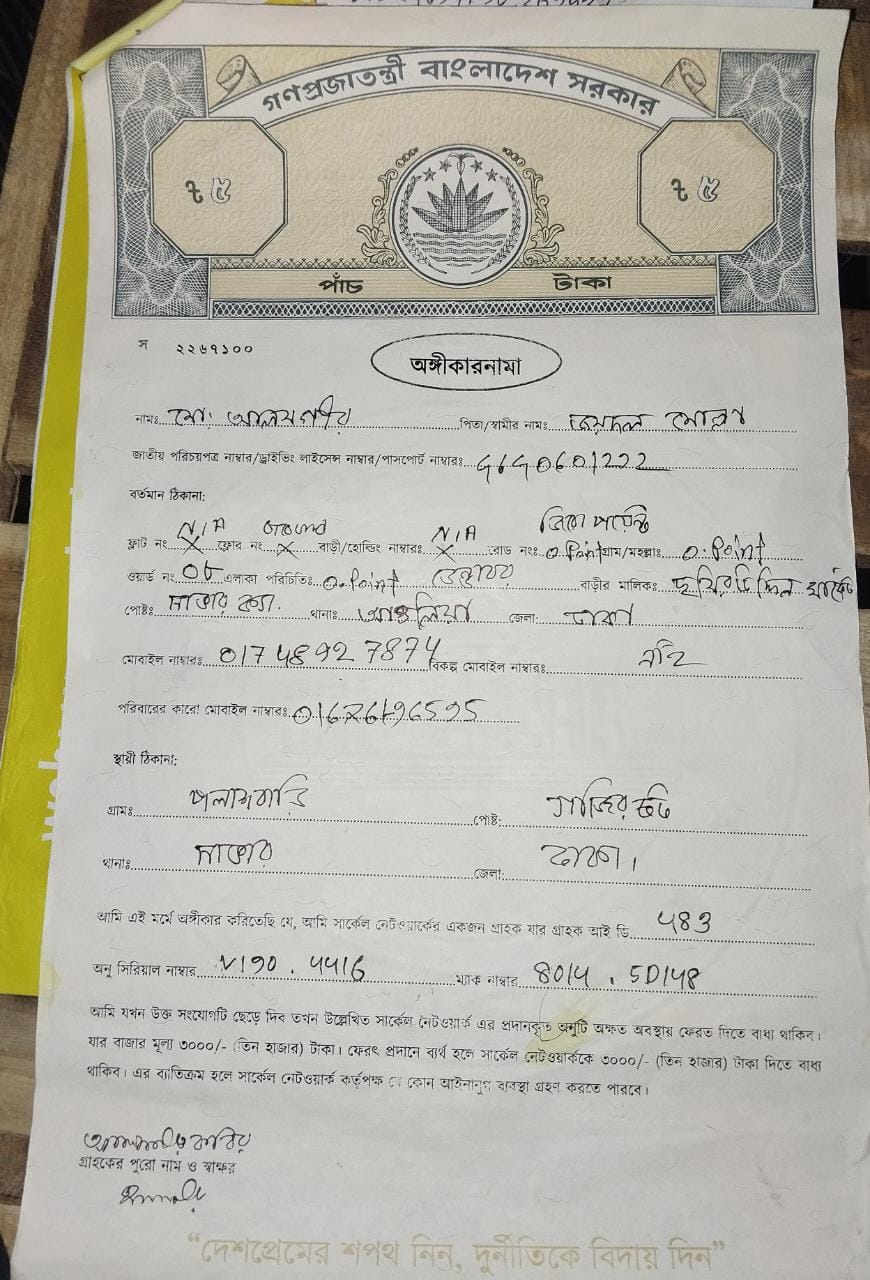 গণপ্রজাতন্ত্রী বাংলাদেশ সরকার
৳ ৫ ৳ ৫
পাঁচ টাকা
স ২২৬৭১০০
অঙ্গীকারনামা
নামঃ মো: আলমগীর পিতা/স্বামীর নামঃ মোল্লা
জাতীয় পরিচয়পত্র নাম্বার/ড্রাইভিং লাইসেন্স নাম্বার/পাসপোর্ট নাম্বারঃ
বর্তমান ঠিকানা:
N/A Ground N/A জিরো পয়েন্ট
ফ্লাট নং X ফ্লোর নং X বাড়ী/হোল্ডিং নাম্বারঃ X রোড নংঃ 0 Point গ্রাম/মহল্লাঃ 0. Point
ওয়ার্ড নং 08 এলাকা পরিচিতিঃ 0. Point বাড়ীর মালিকঃ মার্কেট
পোষ্টঃ সাভার ক্যা. থানাঃ আশুলিয়া জেলা: ঢাকা
মোবাইল নাম্বারঃ 01748927874 বিকল্প মোবাইল নাম্বারঃ নাই
পরিবারের কারো মোবাইল নাম্বারঃ
স্থায়ী ঠিকানা:
গ্রামঃ পলাশবাড়ি পোষ্ট:
থানাঃ সাভার জেলা: ঢাকা।
আমি এই মর্মে অঙ্গীকার করিতেছি যে, আমি সার্কেল নেটওয়ার্কের একজন গ্রাহক যার গ্রাহক আই ডি 483
অনু সিরিয়াল নাম্বার V190 . 4416 ম্যাক নাম্বার 8014 . 5D148
আমি যখন উক্ত সংযোগটি ছেড়ে দিব তখন উল্লেখিত সার্কেল নেটওয়ার্ক এর প্রদানকৃত অনুটি অক্ষত অবস্থায় ফেরত দিতে বাধ্য থাকিব।
যার বাজার মূল্য ৩০০০/- (তিন হাজার) টাকা। ফেরৎ প্রদানে ব্যর্থ হলে সার্কেল নেটওয়ার্ককে ৩০০০/- (তিন হাজার) টাকা দিতে বাধ্য
থাকিব। এর ব্যতিক্রম হলে সার্কেল নেটওয়ার্ক কর্তৃপক্ষ যে কোন আইনানুগ ব্যবস্থা গ্রহণ করতে পারবে।
গ্রাহকের পুরো নাম ও স্বাক্ষর
“দেশপ্রেমের শপথ নিন, দুর্নীতিকে বিদায় দিন”